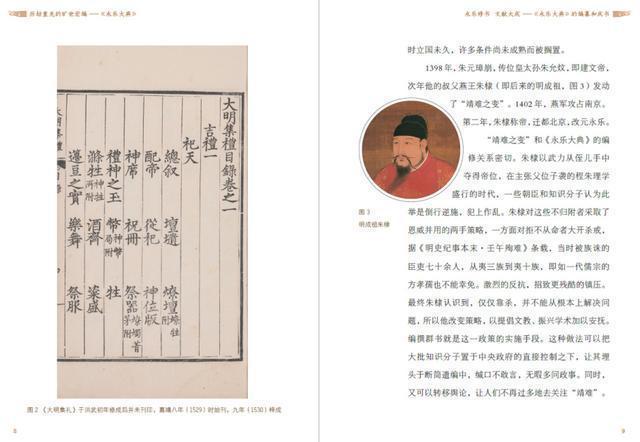 历劫重光的旷世宏编——《永乐大典》
大明集禮目錄卷之一
吉禮一
祀天
總敘 壇壝 燎壇燎牲附
配帝 從祀 神位版
神席 祝冊 祭器
禮神之玉 幣
滌牲 酒齊 粢盛
籩豆之實 樂舞 祭服
图 2 《大明集礼》于洪武初年修成后并未刊印，嘉靖八年（1529）时始刊，九年（1530）梓成
8
永乐修书 文献大成——《永乐大典》的编纂和成书
时立国未久，许多条件尚未成熟而被搁置。
1398 年，朱元璋崩，传位皇太孙朱允炆，即建文帝，
次年他的叔父燕王朱棣（即后来的明成祖，图 3）发动
了“靖难之变”。1402 年，燕军攻占南京。
第二年，朱棣称帝，迁都北京，改元永乐。
“靖难之变”和《永乐大典》的编
修关系密切。朱棣以武力从侄儿手中
夺得帝位，在主张父位子袭的程朱理学
盛行的时代，一些朝臣和知识分子认为此
图 3
明成祖朱棣
举是倒行逆施，犯上作乱。朱棣对这些不归附者采取了
恩威并用的两手策略，一方面对拒不从命者大开杀戒，
据《明史纪事本末·壬午殉难》条载，当时被族诛的
臣吏七十余人，从夷三族到夷十族，即如一代儒宗的
方孝孺也不能幸免。激烈的反抗，招致更残酷的镇压。
最终朱棣认识到，仅仅靠杀，并不能从根本上解决问
题，所以他改变策略，以提倡文教、振兴学术加以安抚。
编撰群书就是这一政策的实施手段。这种做法可以把
大批知识分子置于中央政府的直接控制之下，让其埋
头于断简遗编中，缄口不敢言，无暇多问政事。同时，
又可以转移舆论，让人们不再过多地去关注“靖难”。
9